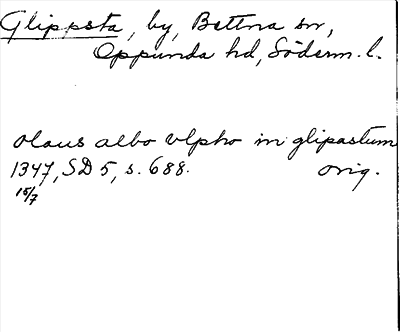 Glippsta, by, Bettna sn,
Oppunda hd, Söderm. l.
olaus albo vlpho in glipastum
1347, SD 5, s. 688. orig.
15/7